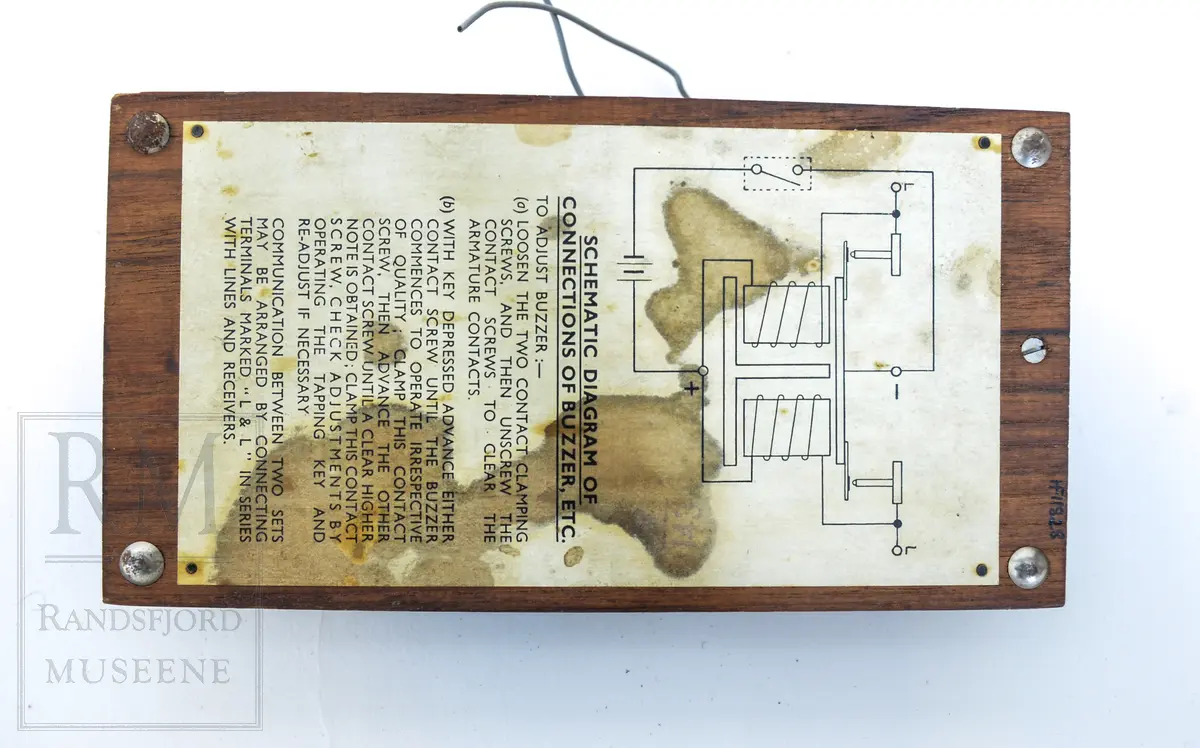 L
L
−
+
SCHEMATIC DIAGRAM OF
CONNECTIONS OF BUZZER, ETC.
TO ADJUST BUZZER :—
(a) LOOSEN THE TWO CONTACT CLAMPING
SCREWS, AND THEN UNSCREW THE
CONTACT SCREWS TO CLEAR THE
ARMATURE CONTACTS.
(b) WITH KEY DEPRESSED ADVANCE EITHER
CONTACT SCREW UNTIL THE BUZZER
COMMENCES TO OPERATE IRRESPECTIVE
OF QUALITY; CLAMP THIS CONTACT
SCREW, THEN ADVANCE THE OTHER
CONTACT SCREW UNTIL A CLEAR HIGHER
NOTE IS OBTAINED; CLAMP THIS CONTACT
SCREW, CHECK ADJUSTMENTS BY
OPERATING THE TAPPING KEY AND
RE-ADJUST IF NECESSARY
COMMUNICATION BETWEEN TWO SETS
MAY BE ARRANGED BY CONNECTING
TERMINALS MARKED "L & L" IN SERIES
WITH LINES AND RECEIVERS.
RM
RANDSFJORD
MUSEENE